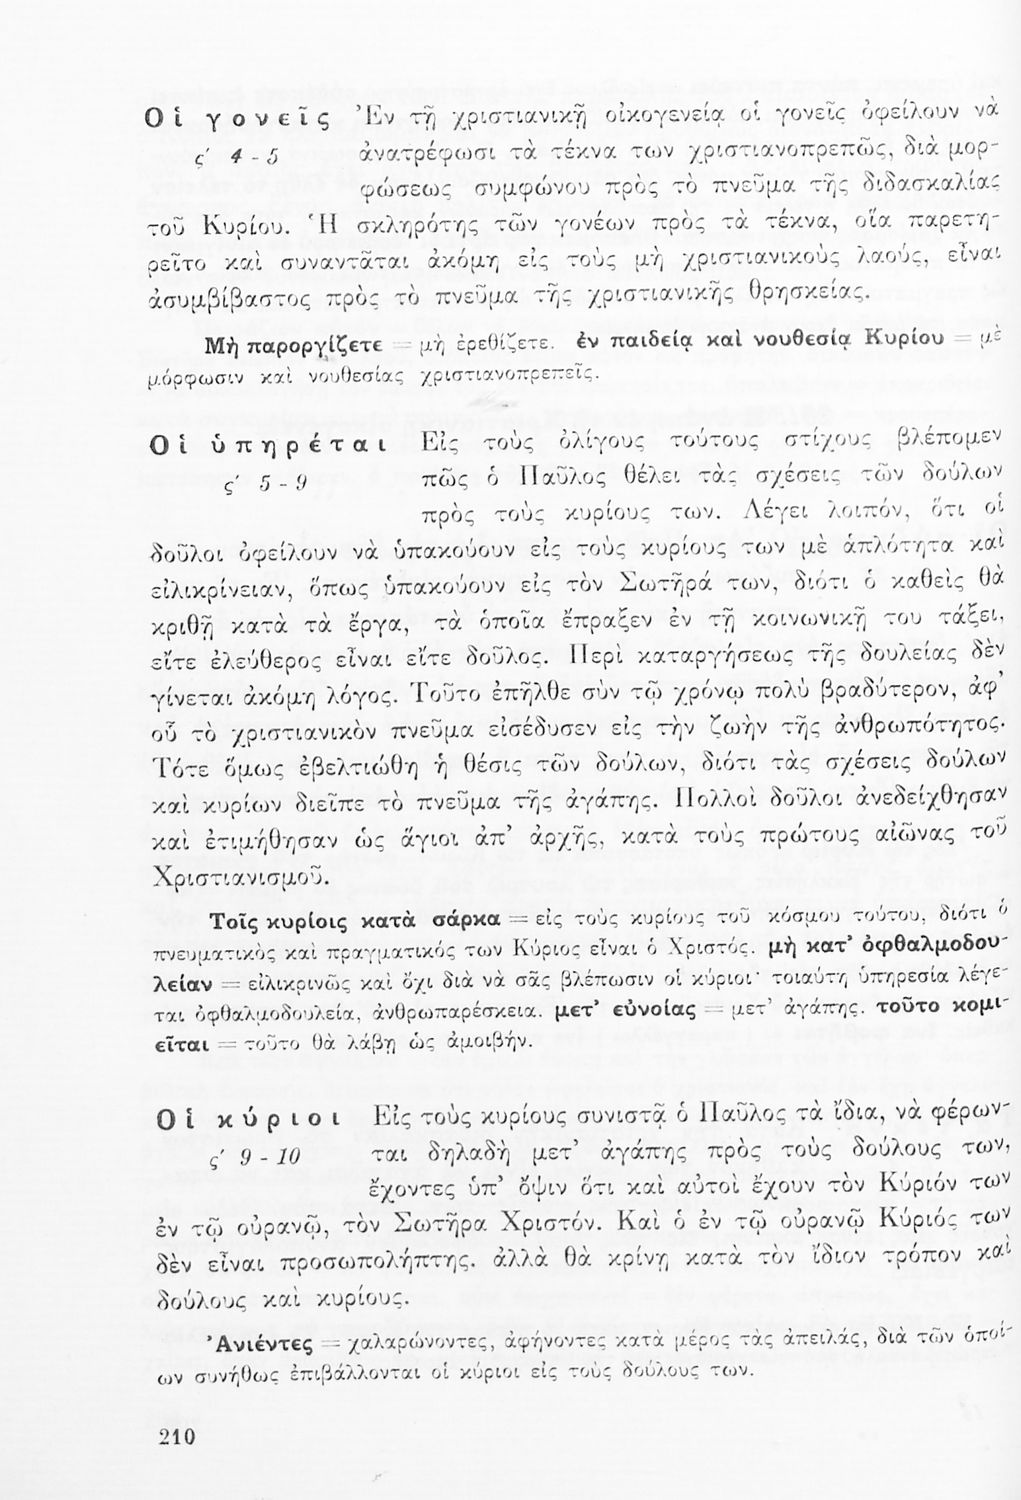 Οἱ γονεῖς Ἐν τῇ χριστιανικῇ οἰκογενείᾳ οἱ γονεῖς ὀφείλουν νὰ
ς΄ 4 - 5 ἀνατρέφωσι τὰ τέκνα των χριστιανοπρεπῶς, διὰ μορ-
φώσεως συμφώνου πρὸς τὸ πνεῦμα τῆς διδασκαλίας
τοῦ Κυρίου. Ἡ σκληρότης τῶν γονέων πρὸς τὰ τέκνα, οἵα παρετη-
ρεῖτο καὶ συναντᾶται ἀκόμη εἰς τοὺς μὴ χριστιανικοὺς λαούς, εἶναι
ἀσυμβίβαστος πρὸς τὸ πνεῦμα τῆς χριστιανικῆς θρησκείας.
Μὴ παροργίζετε = μὴ ἐρεθίζετε. ἐν παιδείᾳ καὶ νουθεσίᾳ Κυρίου = μὲ
μόρφωσιν καὶ νουθεσίας χριστιανοπρεπεῖς.
Οἱ ὑπηρέται Εἰς τοὺς ὀλίγους τούτους στίχους βλέπομεν
ς΄ 5 - 9 πῶς ὁ Παῦλος θέλει τὰς σχέσεις τῶν δούλων
πρὸς τοὺς κυρίους των. Λέγει λοιπόν, ὅτι οἱ
δοῦλοι ὀφείλουν νὰ ὑπακούουν εἰς τοὺς κυρίους των μὲ ἁπλότητα καὶ
εἰλικρίνειαν, ὅπως ὑπακούουν εἰς τὸν Σωτῆρά των, διότι ὁ καθεὶς θὰ
κριθῇ κατὰ τὰ ἔργα, τὰ ὁποῖα ἔπραξεν ἐν τῇ κοινωνικῇ του τάξει,
εἴτε ἐλεύθερος εἶναι εἴτε δοῦλος. Περὶ καταργήσεως τῆς δουλείας δὲν
γίνεται ἀκόμη λόγος. Τοῦτο ἐπῆλθε σὺν τῷ χρόνῳ πολὺ βραδύτερον, ἀφ'
οὗ τὸ χριστιανικὸν πνεῦμα εἰσέδυσεν εἰς τὴν ζωὴν τῆς ἀνθρωπότητος.
Τότε ὅμως ἐβελτιώθη ἡ θέσις τῶν δούλων, διότι τὰς σχέσεις δούλων
καὶ κυρίων διεῖπε τὸ πνεῦμα τῆς ἀγάπης. Πολλοὶ δοῦλοι ἀνεδείχθησαν
καὶ ἐτιμήθησαν ὡς ἅγιοι ἀπ' ἀρχῆς, κατὰ τοὺς πρώτους αἰῶνας τοῦ
Χριστιανισμοῦ.
Τοῖς κυρίοις κατὰ σάρκα = εἰς τοὺς κυρίους τοῦ κόσμου τούτου, διότι ὁ
πνευματικὸς καὶ πραγματικός των Κύριος εἶναι ὁ Χριστός. μὴ κατ' ὀφθαλμοδου-
λείαν = εἰλικρινῶς καὶ ὄχι διὰ νὰ σᾶς βλέπωσιν οἱ κύριοι· τοιαύτη ὑπηρεσία λέγε-
ται ὀφθαλμοδουλεία, ἀνθρωπαρέσκεια. μετ' εὐνοίας = μετ' ἀγάπης. τοῦτο κομι-
εῖται = τοῦτο θὰ λάβῃ ὡς ἀμοιβήν.
Οἱ κύριοι Εἰς τοὺς κυρίους συνιστᾷ ὁ Παῦλος τὰ ἴδια, νὰ φέρων-
ς΄ 9 - 10 ται δηλαδὴ μετ' ἀγάπης πρὸς τοὺς δούλους των,
ἔχοντες ὑπ' ὄψιν ὅτι καὶ αὐτοὶ ἔχουν τὸν Κύριόν των
ἐν τῷ οὐρανῷ, τὸν Σωτῆρα Χριστόν. Καὶ ὁ ἐν τῷ οὐρανῷ Κύριός των
δὲν εἶναι προσωπολήπτης. ἀλλὰ θὰ κρίνῃ κατὰ τὸν ἴδιον τρόπον καὶ
δούλους καὶ κυρίους.
Ἀνιέντες = χαλαρώνοντες, ἀφήνοντες κατὰ μέρος τὰς ἀπειλάς, διὰ τῶν ὁποί-
ων συνήθως ἐπιβάλλονται οἱ κύριοι εἰς τοὺς δούλους των.
210